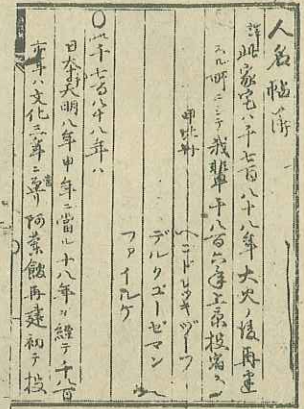 人名帖ノ序
訳 此家宅ハ千七百八十八年大火ノ後再建
スル所ニシテ我輩千八百六年上京投宿ス
甲比丹
ヘンドレッキヅーフ
デルクコーゼマン
ファイルケ
〇此千七百八十八年ハ
日本ノ天明八年申年ニ當ル十八年ヲ經テ千八百
六年ハ文化三寅年ニ
阿蘭館再建初テ投